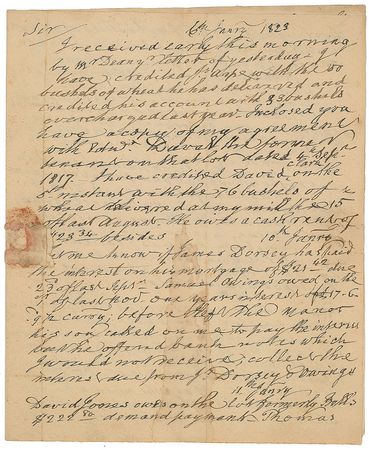 Sir 6th Janry 1823
I received early this morning
by Mr Deany letter of yesterday. I
have credited with the 50
bushels of wheat he has delivered and
credited his account with 33 bushels
overcharged last year. Inclosed you
have a copy of my agreement
with Edwd. Duvall the former
tenant on that lot dated 4 Sepr
1817. I have credited David, on the
8th instant with the 76 bushels of
wheat delivered at my mill the 15
of last August. He owes a cash rent of
besides 10th Janry
Let me know if James Dorsey has paid
the interest on his mortgage of due
23d of last Septr. Samuel Owings owed on the
of last one years interest
curry; before I left the manor
his son called on me to pay the interest
but he offered bank notes which
I would not receive; collect the
interest due from Dorsey & Owings
Janry
David owes on the lot formerly
$222 80 demand payment Thomas